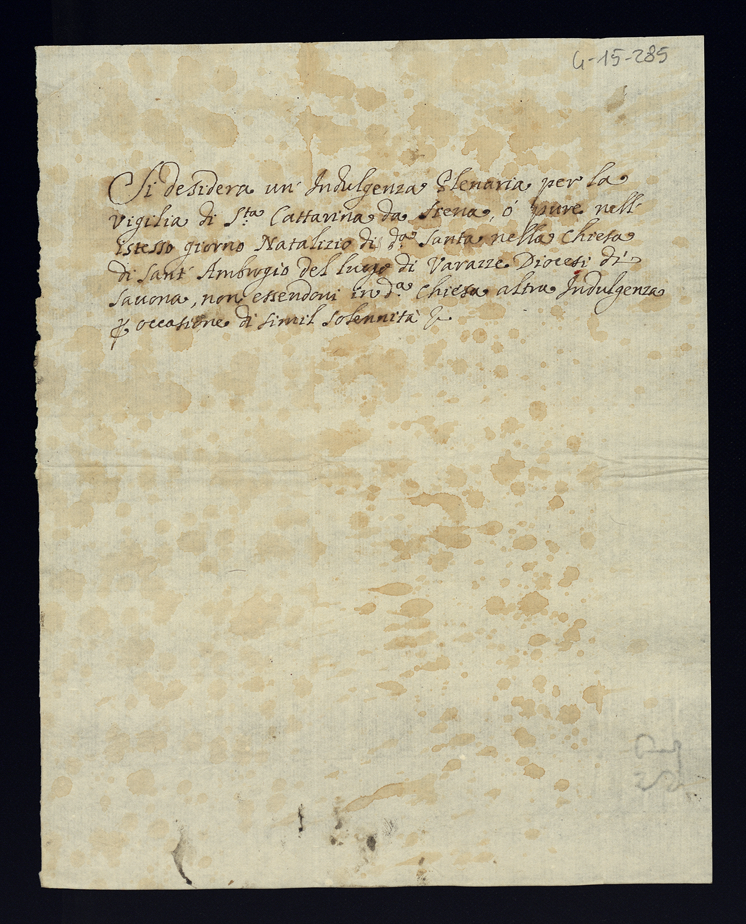 G-15-285
Si desidera un' Indulgenza Plenaria per la
vigilia di S.ta Cattarina da Siena, ó pure nell'
istesso giorno Natalizio di d.a Santa nella Chiesa
di Sant' Ambrogio del luogo di Varazze Diocesi di
Savona, non essendovi in d.a Chiesa altra Indulgenza
occasione di simil solennità